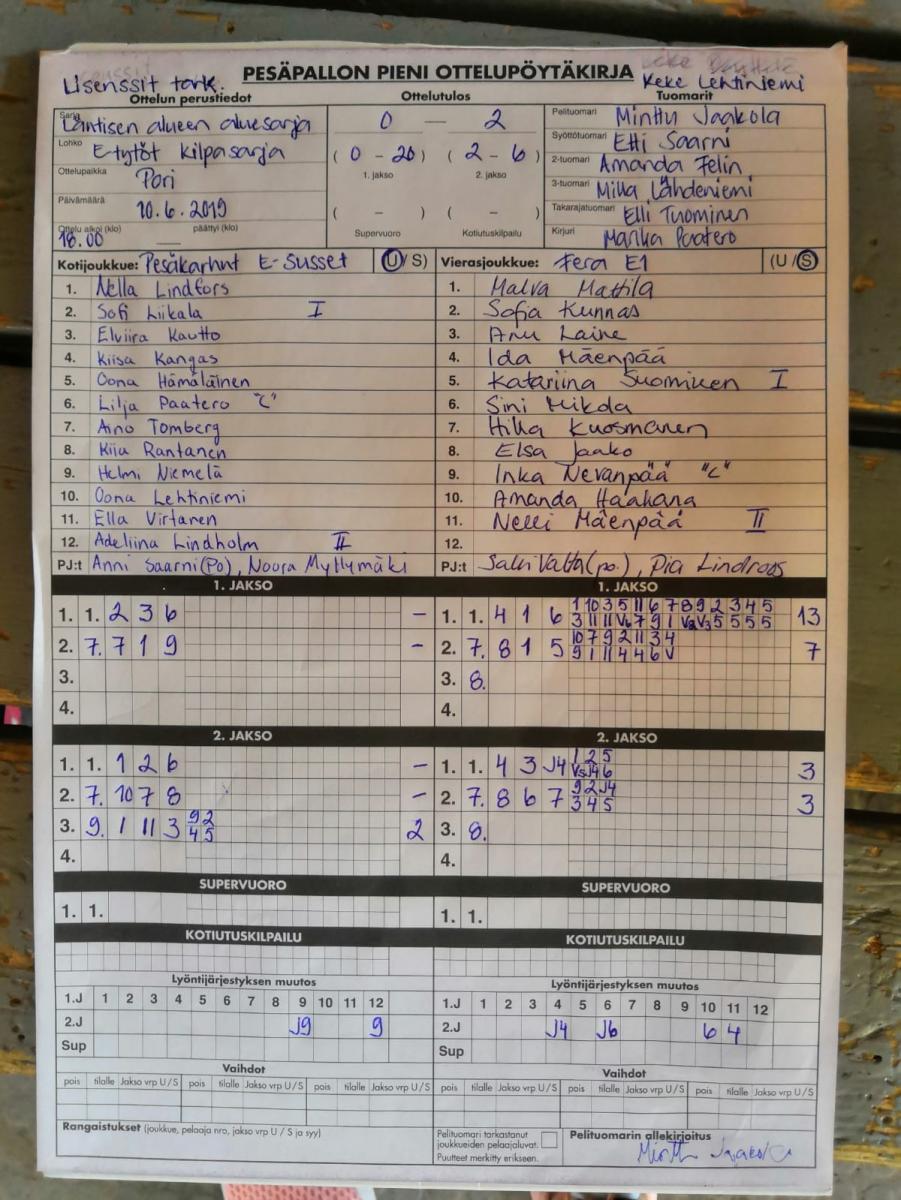 Lisenssit tark.
PESÄPALLON PIENI OTTELUPÖYTÄKIRJA
Keke Lehtiniemi
Ottelun perustiedot Ottelutulos Tuomarit
Sarja Läntisen alueen aluesarja
0 — 2
Pelituomari Minttu Jaakola
Lohko E-tytöt kilpasarja
( 0 - 20 ) ( 2 - 6 )
Syöttötuomari Etti Saarni
Ottelupaikka Pori
1. jakso 2. jakso
2-tuomari Amanda Felin
3-tuomari Milla Lähdeniemi
Päivämäärä 10.6.2019
( - ) ( - )
Takarajatuomari Elli Tuominen
Ottelu alkoi (klo) 18.00 päättyi (klo) —
Supervuoro Kotiutuskilpailu
Kirjuri Marika Paatero
Kotijoukkue: Pesäkarhut E-Susset (U/S) Vierasjoukkue: Fera E1 (U/S)
1. Nella Lindfors 1. Malva Mattila
2. Sofi Liikala I 2. Sofia Kunnas
3. Elviira Kautto 3. Anu Laine
4. Kiisa Kangas 4. Ida Mäenpää
5. Oona Hämäläinen 5. Katariina Suominen I
6. Lilja Paatero "C" 6. Sini Mikola
7. Aino Tomberg 7. Hilla Kuosmanen
8. Kiia Rantanen 8. Elsa Jaako
9. Helmi Niemelä 9. Inka Nevanpää "C"
10. Oona Lehtiniemi 10. Amanda Haakana
11. Ella Virtanen 11. Nelli Mäenpää II
12. Adeliina Lindholm II 12.
PJ:t Anni Saarni (Po), Noora Myllymäki PJ:t Salli Valta (po.), Pia Lindroos
1. JAKSO 1. JAKSO
1. 1. 2 3 6 – 1. 1. 4 1 6 1 10 3 5 11 6 7 8 9 2 3 4 5 13
3 11 11 V6 7 9 1 V2 V3 5 5 5 5
2. 7. 7 1 9 – 2. 7. 8 1 5 10 7 9 2 11 3 4 7
9 1 11 4 4 6 V
3. 3. 8.
4. 4.
2. JAKSO 2. JAKSO
1. 1. 1 2 6 – 1. 1. 4 3 J4 1 2 5 3
V5 J4 6
2. 7. 10 7 8 – 2. 7. 8 6 7 9 2 J4 3
3 4 5
3. 9. 1 11 3 9 2 2 3. 8.
4 5
4. 4.
SUPERVUORO SUPERVUORO
1. 1. 1. 1.
KOTIUTUSKILPAILU KOTIUTUSKILPAILU
Lyöntijärjestyksen muutos Lyöntijärjestyksen muutos
1.J 1 2 3 4 5 6 7 8 9 10 11 12 1.J 1 2 3 4 5 6 7 8 9 10 11 12
2.J J9 9 2.J J4 J6 6 4
Sup Sup
Vaihdot Vaihdot
pois tilalle Jakso vrp U/S pois tilalle Jakso vrp U/S pois tilalle Jakso vrp U/S pois tilalle Jakso vrp U/S pois tilalle Jakso vrp U/S pois tilalle Jakso vrp U/S
Rangaistukset (joukkue, pelaaja nro, jakso vrp U / S ja syy)
Pelituomari tarkastanut
joukkueiden pelaajaluvat.
Puutteet merkitty erikseen.
Pelituomarin allekirjoitus
Mintt Jaakola